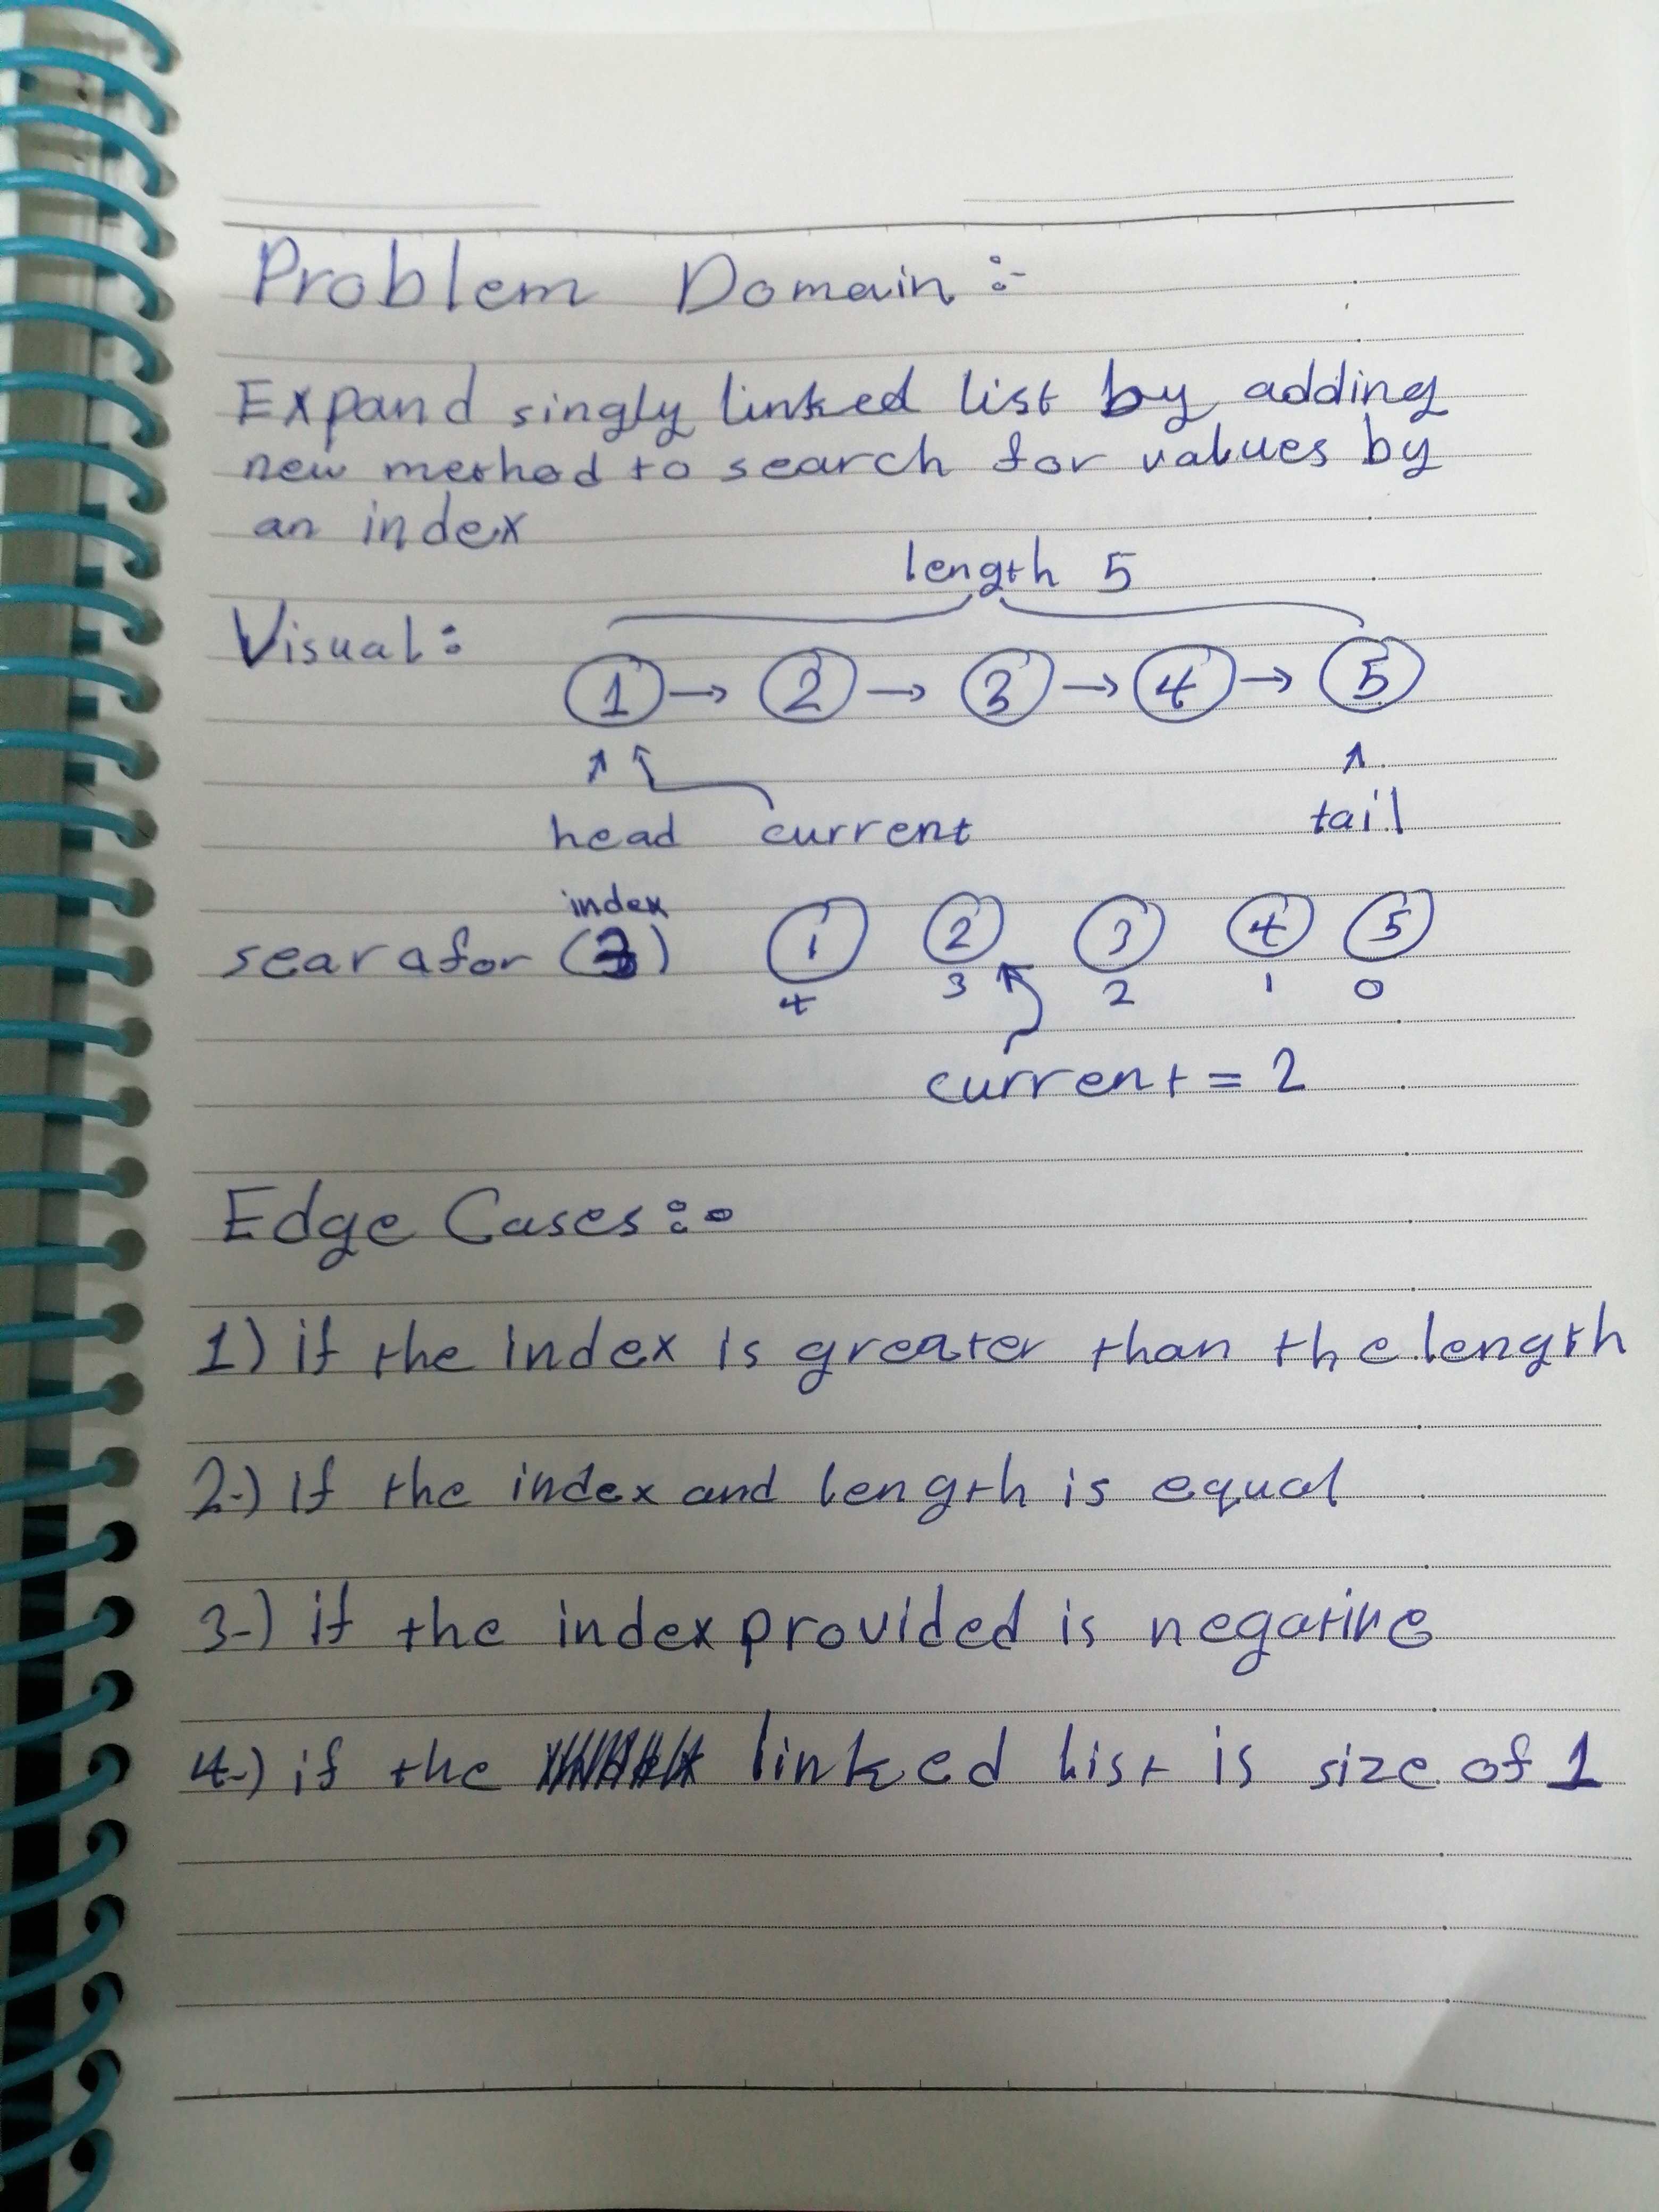 Problem Domain :-
Expand singly linked list by adding
new method to search for values by
an index
length 5
Visual :
1 → 2 → 3 → 4 → 5
head current tail
index
sear afor (3) 1 2 3 4 5
4 3 2 1 0
current = 2
Edge Cases :-
1) if the index is greater than the length
2-) if the index and length is equal
3-) if the index provided is negative
4-) if the linked list is size of 1